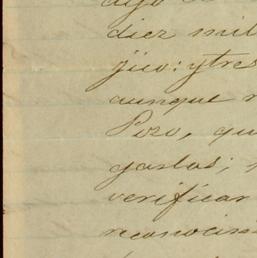 diez mil
jico: y tres
aunque
Pozo, qu
gastos;
verificar
reconocim